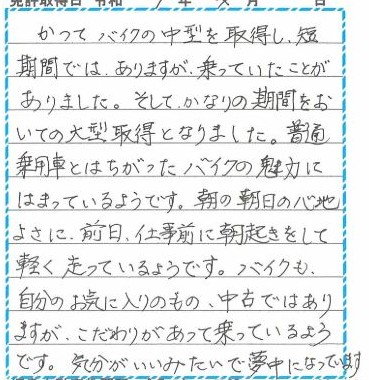 免許取得日 令和 年 月 日
かつてバイクの中型を取得し、短
期間では、ありますが、乗っていたことが
ありました。そして、かなりの期間をお
いての大型取得となりました。普通
乗用車とはちがったバイクの魅力に
はまっているようです。朝の朝日の心地
よさに、前日、仕事前に朝起きをして
軽く走っているようです。バイクも、
自分のお気に入りのもの、中古ではあり
ますが、こだわりがあって乗っているよう
です。気分がいいみたいで夢中になっています